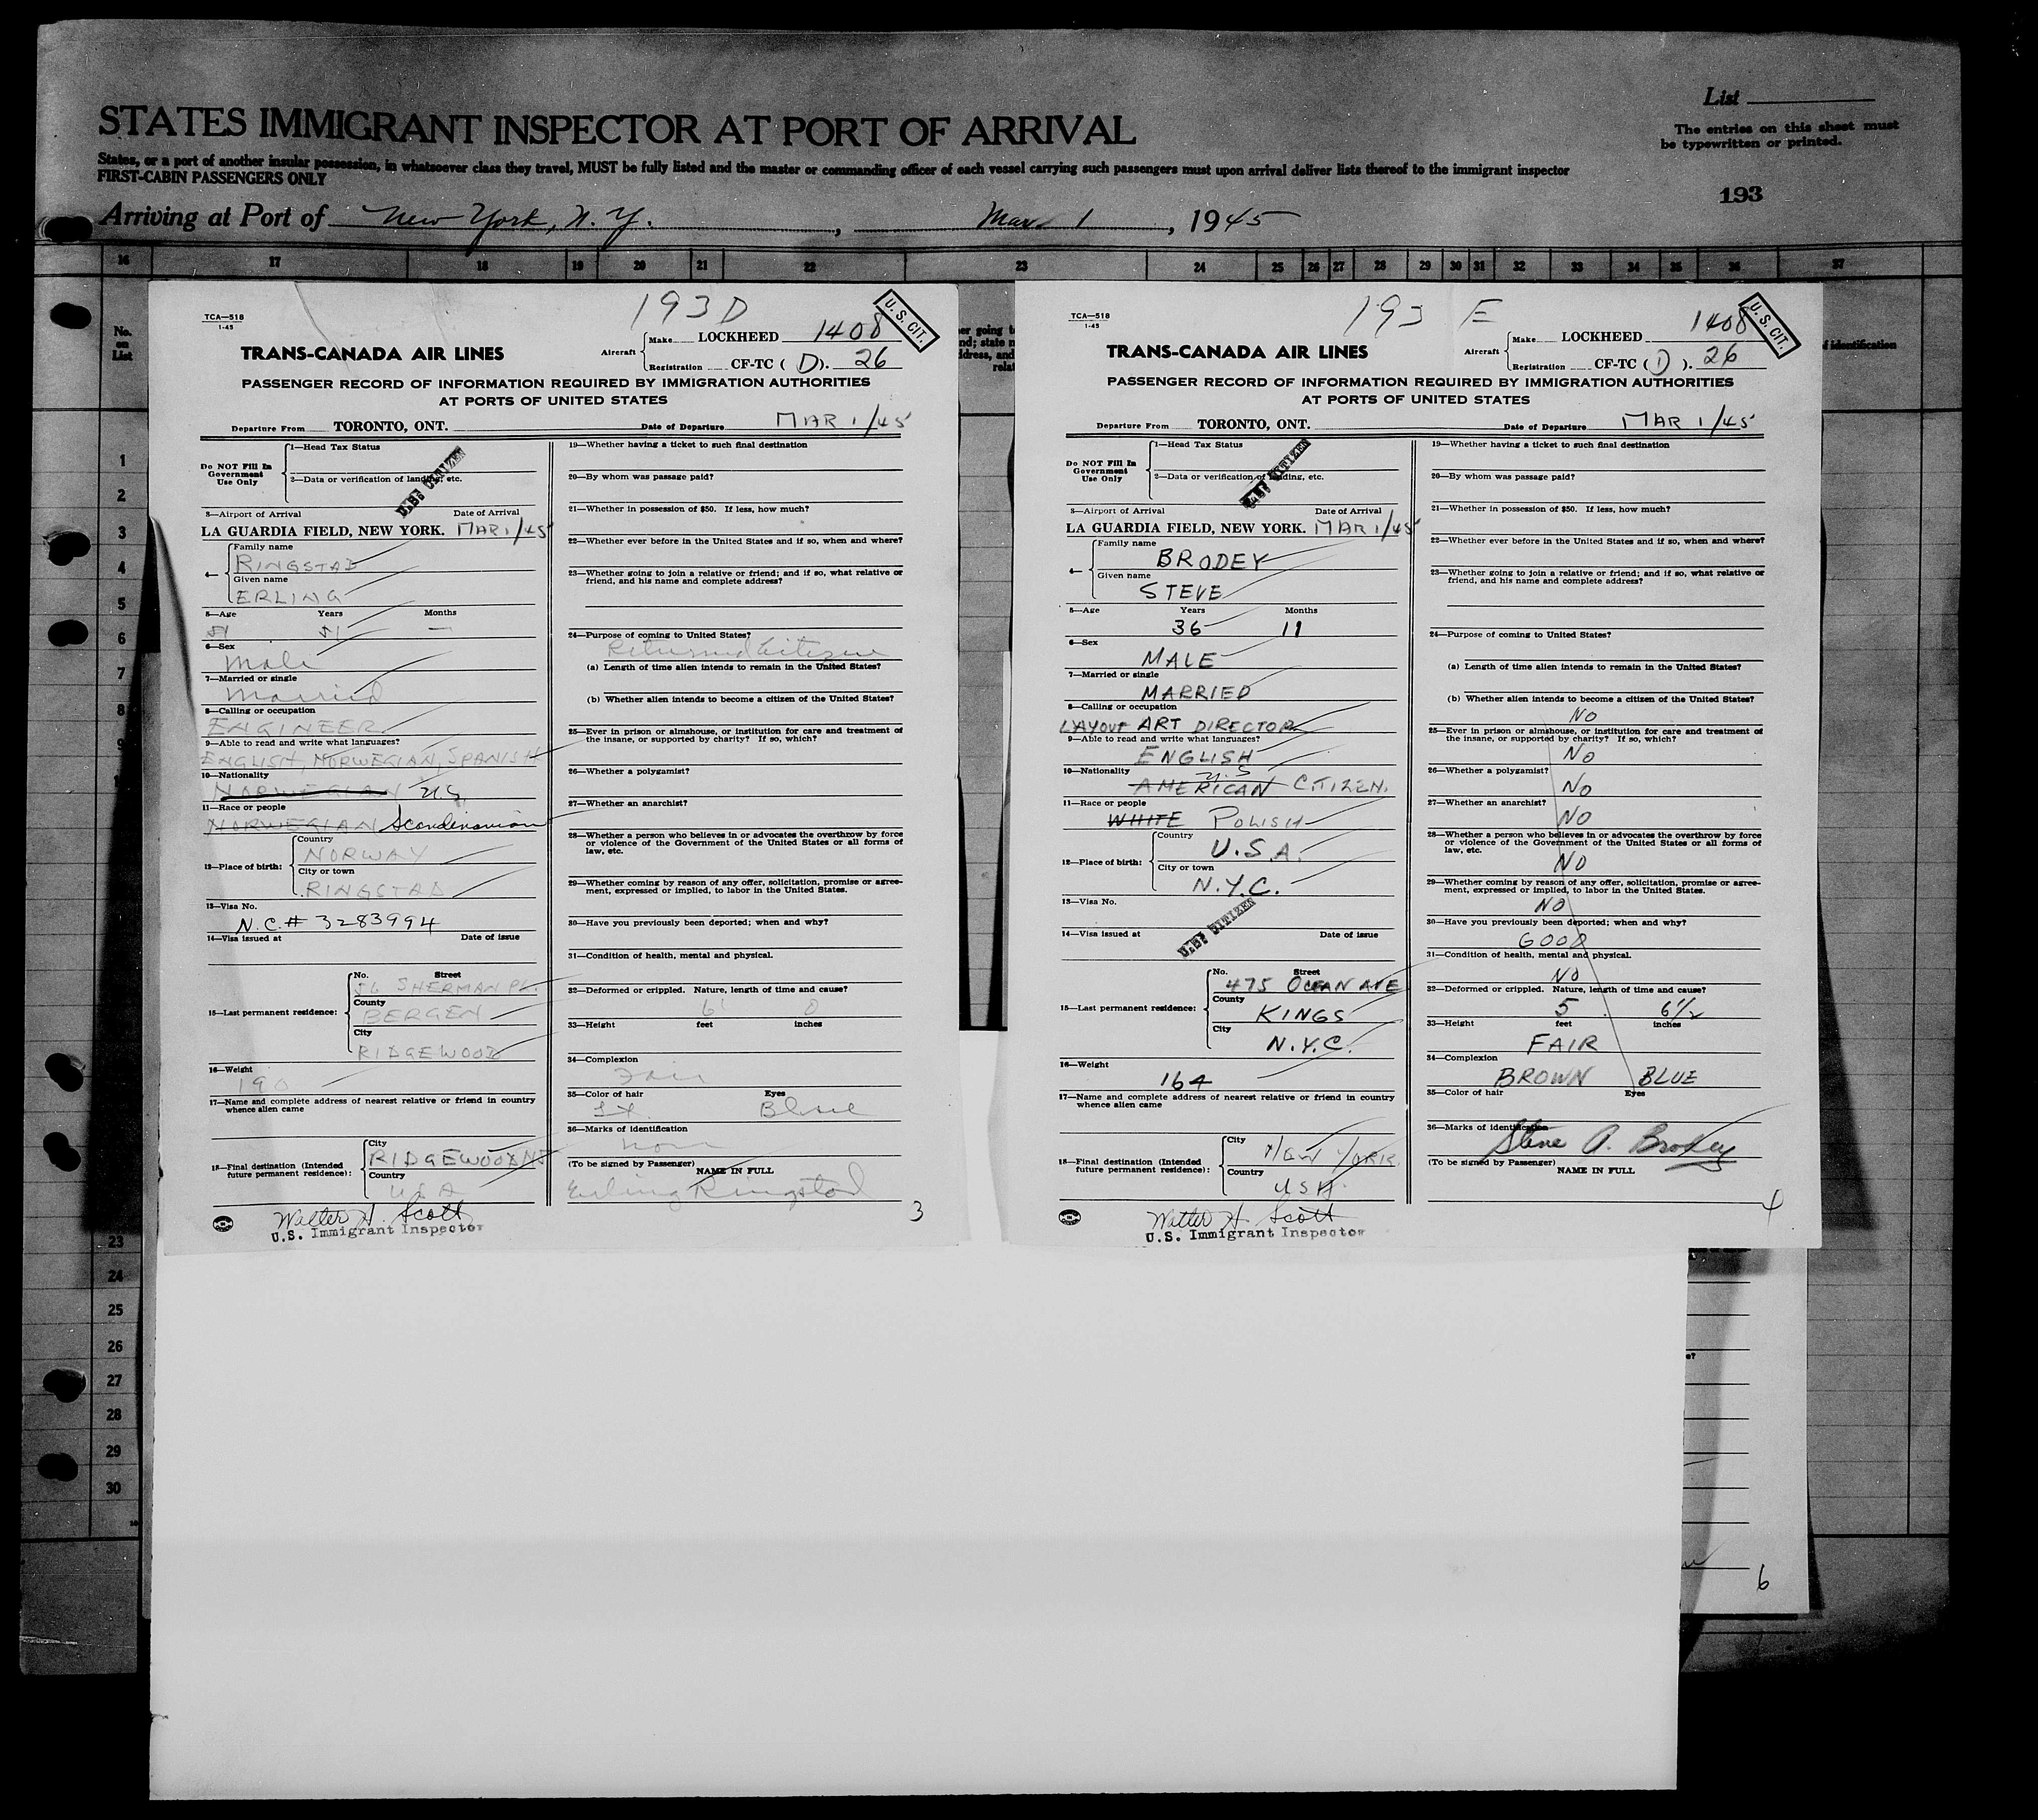 List
STATES IMMIGRANT INSPECTOR AT PORT OF ARRIVAL
The entries on this sheet must
be typewritten or printed.
States, or a port of another insular possession, in whatsoever class they travel, MUST be fully listed and the master or commanding officer of each vessel carrying such passengers must upon arrival deliver lists thereof to the immigrant inspector
FIRST-CABIN PASSENGERS ONLY
193
Arriving at Port of New York, N. Y., Mar 1, 1945
16 17 18 19 20 21 22 23 24 25 26 27 28 29 30 31 32 33 34 35 36 37
No.
on
List
1
2
3
4
5
6
7
8
9
23
24
25
26
27
28
29
30
193 D
U. S. CIT.
TCA—518
1-45
TRANS-CANADA AIR LINES
Aircraft
Make LOCKHEED 1408
Registration CF-TC ( D ). 26
PASSENGER RECORD OF INFORMATION REQUIRED BY IMMIGRATION AUTHORITIES
AT PORTS OF UNITED STATES
Departure From TORONTO, ONT. Date of Departure MAR 1/45
Do NOT Fill In
Government
Use Only
1—Head Tax Status
2—Data or verification of landing, etc.
U.S. CITIZEN
3—Airport of Arrival Date of Arrival
LA GUARDIA FIELD, NEW YORK. MAR 1/45
4— Family name
RINGSTAD
Given name
ERLING
5—Age Years Months
51 51 —
6—Sex
Male
7—Married or single
Married
8—Calling or occupation
ENGINEER
9—Able to read and write what languages?
ENGLISH, NORWEGIAN, SPANISH
10—Nationality
NORWEGIAN U.S
11—Race or people
NORWEGIAN Scandinavian
12—Place of birth:
Country
NORWAY
City or town
RINGSTAD
13—Visa No.
N.C.# 3283994
14—Visa issued at Date of issue
15—Last permanent residence:
No. Street
56 SHERMAN PL.
County
BERGEN
City
RIDGEWOOD
16—Weight
190
17—Name and complete address of nearest relative or friend in country
whence alien came
18—Final destination (Intended
future permanent residence):
City
RIDGEWOOD NJ
Country
USA
Walter H. Scott
U.S. Immigrant Inspector
19—Whether having a ticket to such final destination
20—By whom was passage paid?
21—Whether in possession of $50. If less, how much?
22—Whether ever before in the United States and if so, when and where?
23—Whether going to join a relative or friend; and if so, what relative or
friend, and his name and complete address?
24—Purpose of coming to United States?
Returned Citizen
(a) Length of time alien intends to remain in the United States?
(b) Whether alien intends to become a citizen of the United States?
25—Ever in prison or almshouse, or institution for care and treatment of
the insane, or supported by charity? If so, which?
26—Whether a polygamist?
27—Whether an anarchist?
28—Whether a person who believes in or advocates the overthrow by force
or violence of the Government of the United States or all forms of
law, etc.
29—Whether coming by reason of any offer, solicitation, promise or agree-
ment, expressed or implied, to labor in the United States.
30—Have you previously been deported; when and why?
31—Condition of health, mental and physical.
32—Deformed or crippled. Nature, length of time and cause?
6 0
33—Height feet inches
34—Complexion
Fair
35—Color of hair Eyes
Lt. Blue
36—Marks of identification
non
(To be signed by Passenger) NAME IN FULL
Erling Ringstad
3
193 E
U. S. CIT.
TCA—518
1-45
TRANS-CANADA AIR LINES
Aircraft
Make LOCKHEED 1408
Registration CF-TC ( D ). 26
PASSENGER RECORD OF INFORMATION REQUIRED BY IMMIGRATION AUTHORITIES
AT PORTS OF UNITED STATES
Departure From TORONTO, ONT. Date of Departure MAR 1/45
Do NOT Fill In
Government
Use Only
1—Head Tax Status
2—Data or verification of landing, etc.
U.S. CITIZEN
3—Airport of Arrival Date of Arrival
LA GUARDIA FIELD, NEW YORK. MAR 1/45
4— Family name
BRODEY
Given name
STEVE
5—Age Years Months
36 11
6—Sex
MALE
7—Married or single
MARRIED
8—Calling or occupation
LAYOUT ART DIRECTOR
9—Able to read and write what languages?
ENGLISH
10—Nationality
U.S
AMERICAN CITIZEN.
11—Race or people
WHITE POLISH
12—Place of birth:
Country
U.S.A.
City or town
N.Y.C.
13—Visa No.
U.S. CITIZEN
14—Visa issued at Date of issue
15—Last permanent residence:
No. Street
475 OCEAN AVE
County
KINGS
City
N.Y.C.
16—Weight
164
17—Name and complete address of nearest relative or friend in country
whence alien came
18—Final destination (Intended
future permanent residence):
City
NEW YORK
Country
USA.
Walter H. Scott
U.S. Immigrant Inspector
19—Whether having a ticket to such final destination
20—By whom was passage paid?
21—Whether in possession of $50. If less, how much?
22—Whether ever before in the United States and if so, when and where?
23—Whether going to join a relative or friend; and if so, what relative or
friend, and his name and complete address?
24—Purpose of coming to United States?
(a) Length of time alien intends to remain in the United States?
(b) Whether alien intends to become a citizen of the United States?
NO
25—Ever in prison or almshouse, or institution for care and treatment of
the insane, or supported by charity? If so, which?
NO
26—Whether a polygamist?
NO
27—Whether an anarchist?
NO
28—Whether a person who believes in or advocates the overthrow by force
or violence of the Government of the United States or all forms of
law, etc.
NO
29—Whether coming by reason of any offer, solicitation, promise or agree-
ment, expressed or implied, to labor in the United States.
NO
30—Have you previously been deported; when and why?
GOOD
31—Condition of health, mental and physical.
NO
32—Deformed or crippled. Nature, length of time and cause?
5 6½
33—Height feet inches
FAIR
34—Complexion
BROWN BLUE
35—Color of hair Eyes
36—Marks of identification
Steve A. Brodey
(To be signed by Passenger) NAME IN FULL
4
6